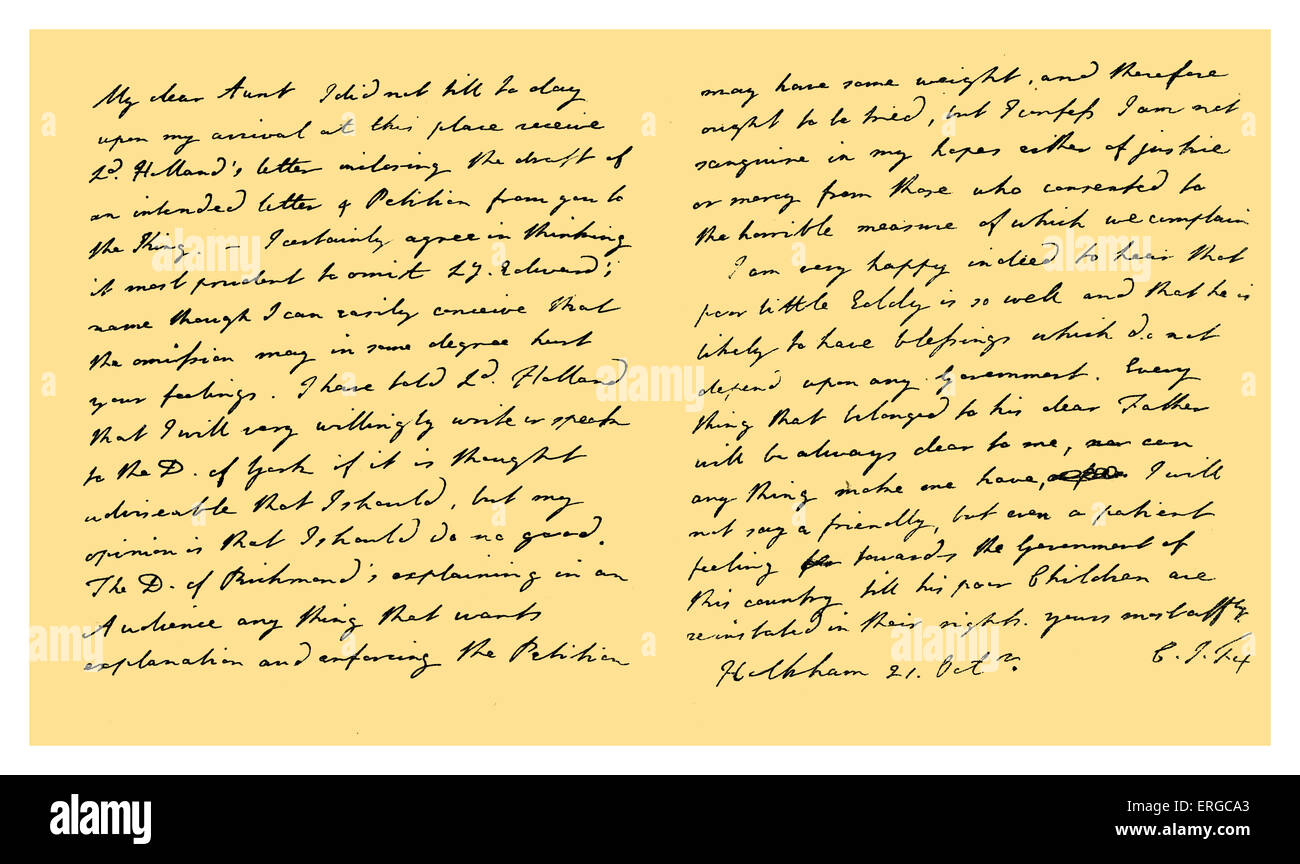 My dear Aunt I did not till to day
upon my arrival at this place receive
Ld. Holland's letter inclosing the draft of
an intended letter & Petition from you to
the King. – I certainly agree in thinking
it most prudent to omit Ld. Edward's
name though I can easily conceive that
the omission may in some degree hurt
your feelings. I have told Ld. Holland
that I will very willingly write or speak
to the D. of York if it is thought
adviseable that I should, but my
opinion is that I should do no good.
The D. of Richmond's explaining in an
Audience any thing that wants
explanation and enforcing the Petition
may have some weight, and therefore
ought to be tried, but I confess I am not
sanguine in my hopes either of justice
or mercy from those who consented to
the horrible measure of which we complain
I am very happy indeed to hear that
poor little Eddy is so well and that he is
likely to have blessings which do not
depend upon any Government. Every
thing that belonged to his dear Father
will be always dear to me, nor can
any thing make me have, I will
not say a friendly, but even a patient
feeling towards the Government of
this country till his poor Children are
reinstated in their rights. yours most affly
Holkham 21. Octr. C. J. Fox
alamy
a
alamy stock photo
ERGCA3
www.alamy.com